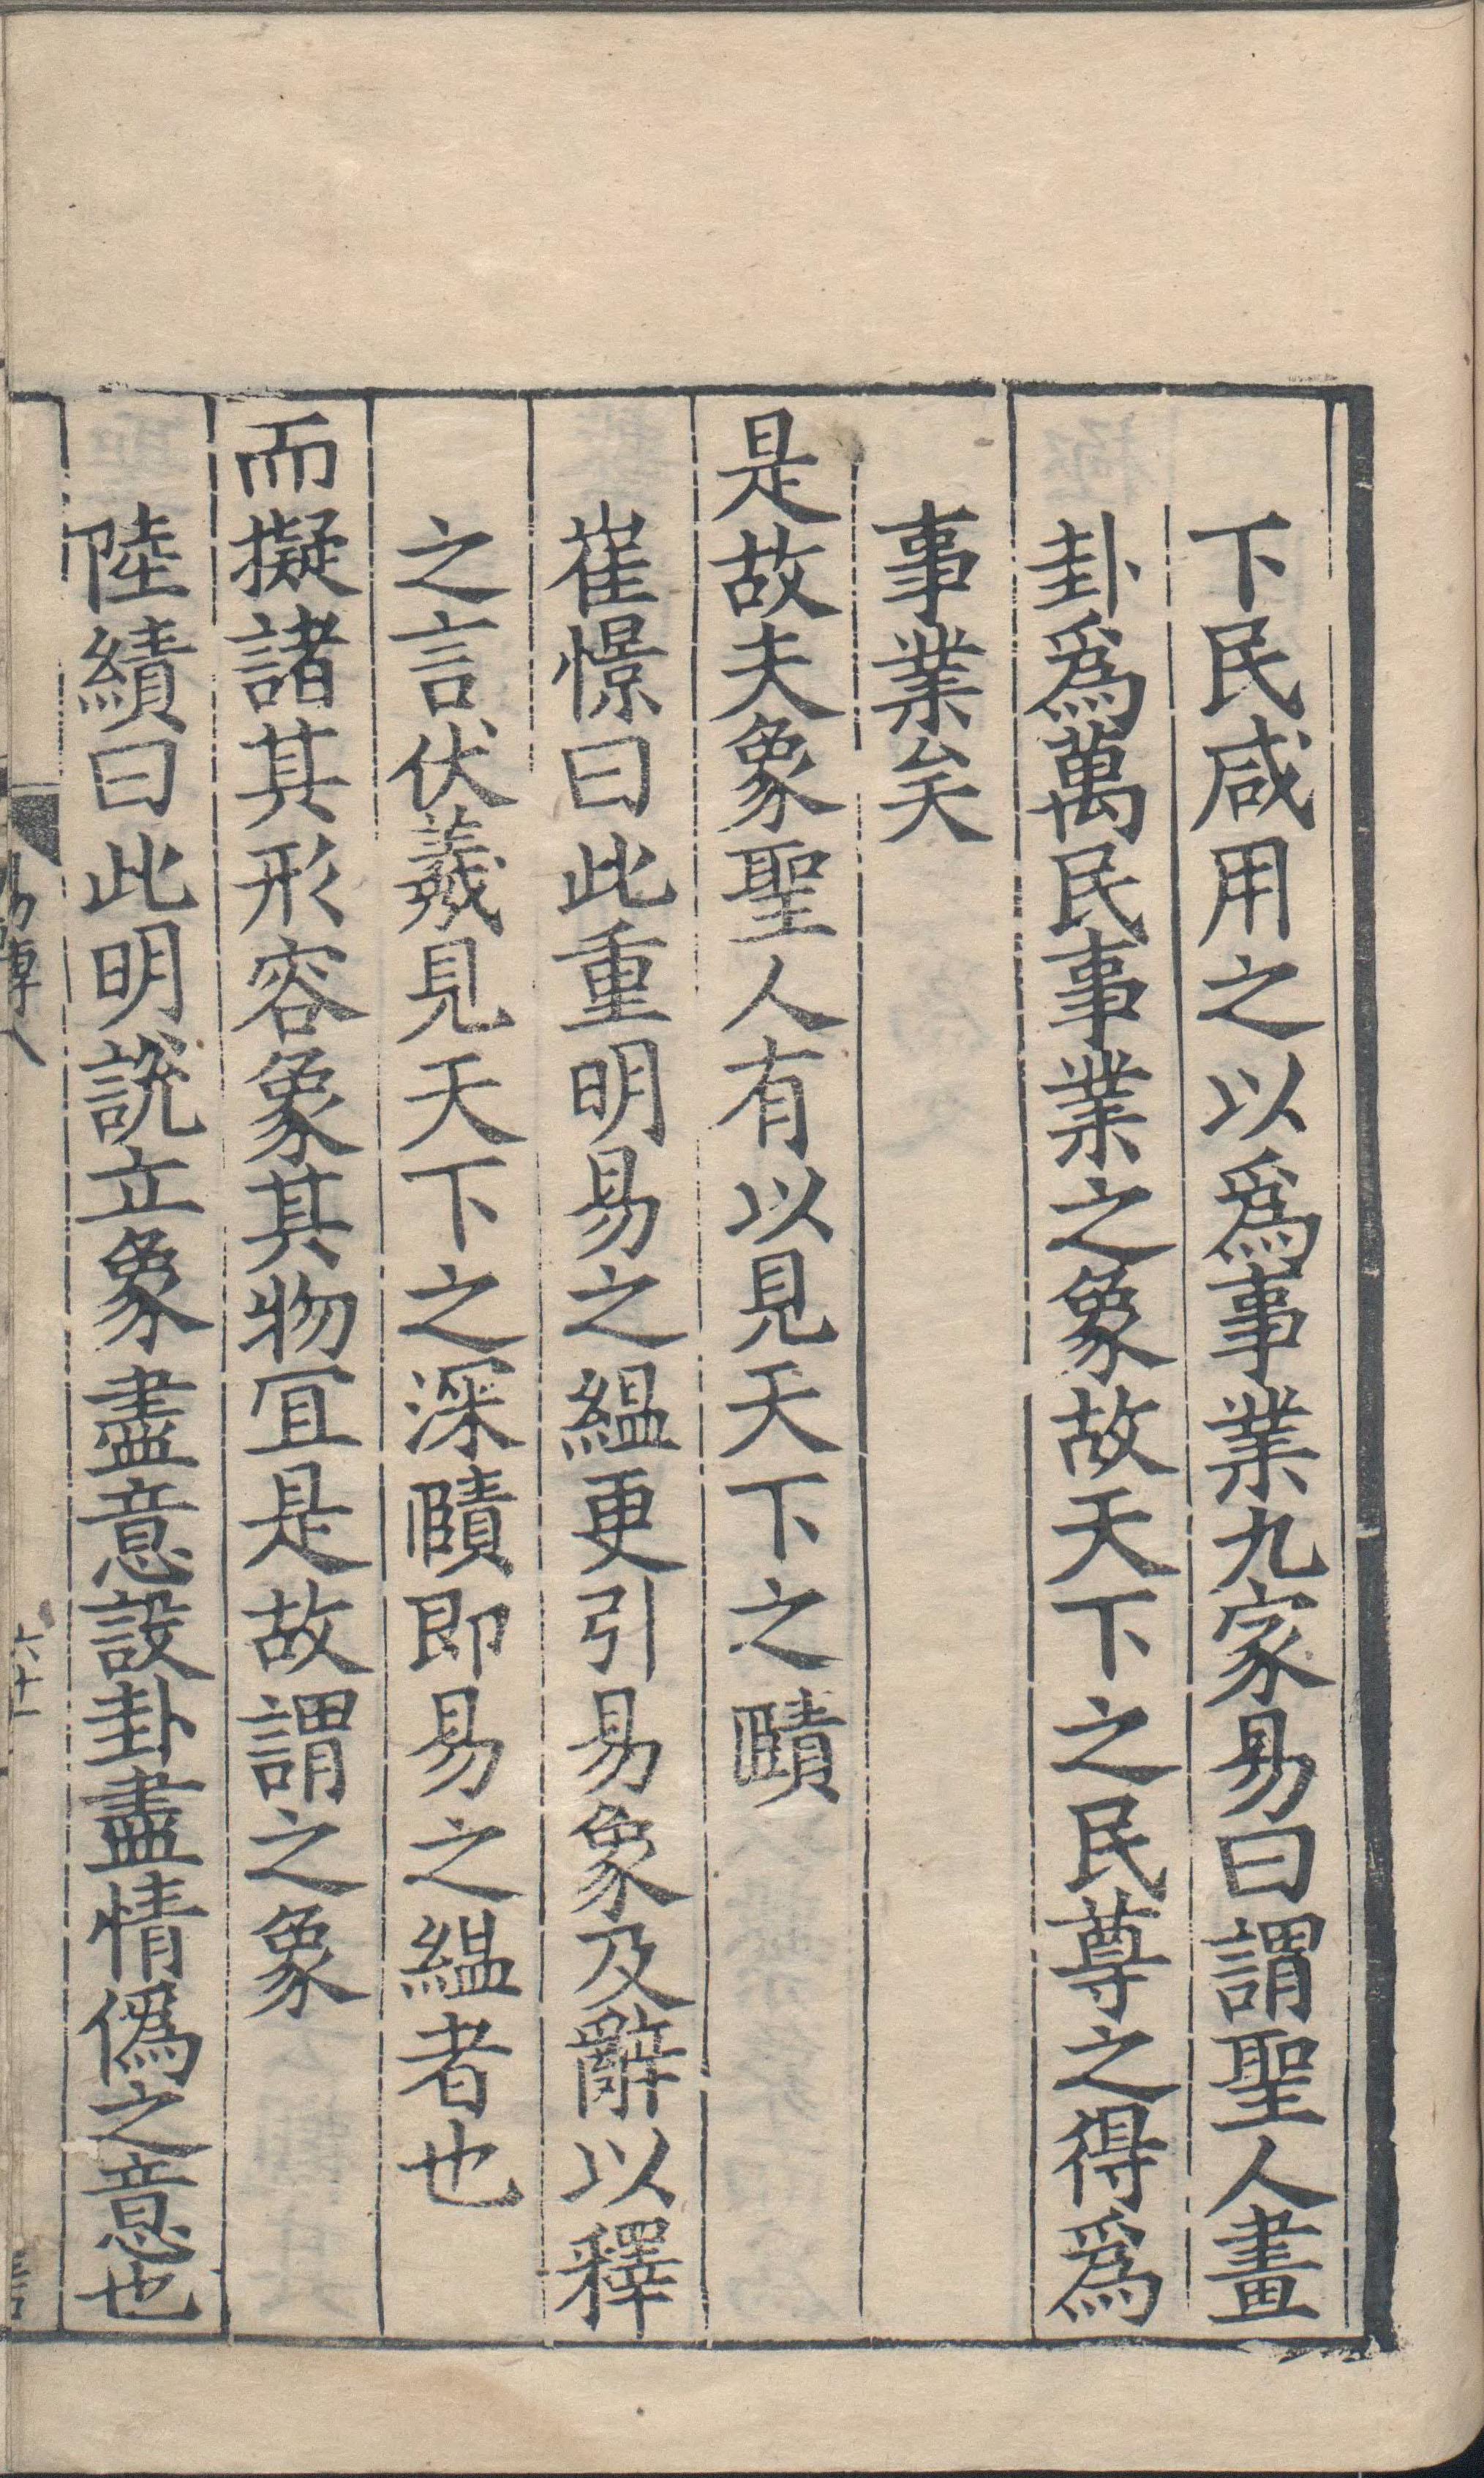 下民咸用之以爲事業九家易曰謂聖人畫
卦爲萬民事業之象故天下之民尊之得爲
事業矣
是故夫象聖人有以見天下之賾
崔憬曰此重明易之縕更引易象及辭以釋
之言伏羲見天下之深賾即易之縕者也
而擬諸其形容象其物宜是故謂之象
陸績曰此明說立象盡意設卦盡情僞之意也
易傳八
六十一